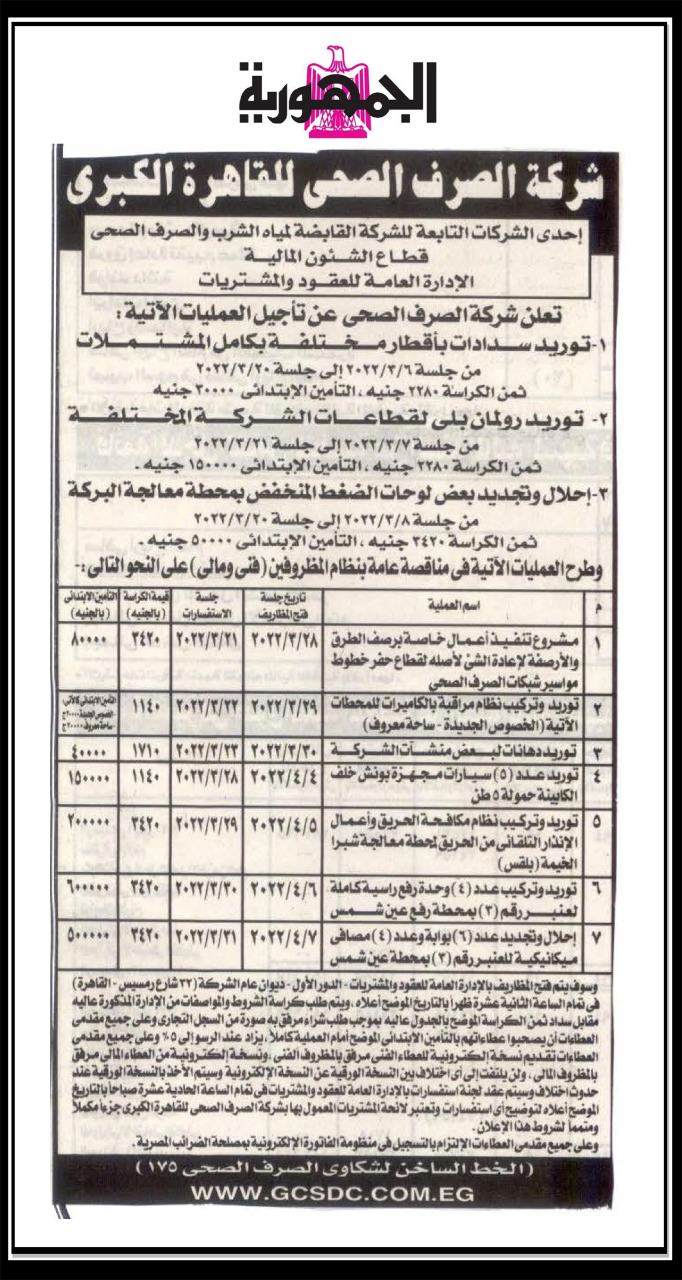 الجمهورية
شركة الصرف الصحى للقاهرة الكبرى
إحدى الشركات التابعة للشركة القابضة لمياه الشرب والصرف الصحى
قطاع الشئون المالية
الإدارة العامة للعقود والمشتريات
تعلن شركة الصرف الصحى عن تأجيل العمليات الآتية :
١-توريد سدادات بأقطار مختلفة بكامل المشتملات
من جلسة ٢٠٢٢/٣/٦ إلى جلسة ٢٠٢٢/٣/٢٠
ثمن الكراسة ٢٢٨٠ جنيه ، التأمين الإبتدائى ٣٠٠٠٠ جنيه
٢- توريد رولمان بلى لقطاعات الشركة المختلفة
من جلسة ٢٠٢٢/٣/٧ إلى جلسة ٢٠٢٢/٣/٢١
ثمن الكراسة ٢٢٨٠ جنيه ، التأمين الإبتدائى ١٥٠٠٠٠ جنيه .
٣-إحلال وتجديد بعض لوحات الضغط المنخفض بمحطة معالجة البركة
من جلسة ٢٠٢٢/٣/٨ إلى جلسة ٢٠٢٢/٣/٢٠
ثمن الكراسة ٣٤٢٠ جنيه ، التأمين الإبتدائى ٥٠٠٠٠ جنيه .
وطرح العمليات الآتية فى مناقصة عامة بنظام المظروفين (فنى ومالى) على النحو التالى:-
م اسم العملية تاريخ جلسة فتح المظاريف جلسة الاستفسارات قيمة الكراسة (بالجنيه) التأمين الابتدائى (بالجنيه)
١ مشروع تنفيذ أعمال خاصة برصف الطرق ٢٠٢٢/٣/٢٨ ٢٠٢٢/٣/٢١ ٣٤٢٠ ٨٠٠٠٠
والأرصفة لإعادة الشئ لأصله لقطاع حفر خطوط
مواسير شبكات الصرف الصحى
٢ توريد وتركيب نظام مراقبة بالكاميرات للمحطات ٢٠٢٢/٣/٢٩ ٢٠٢٢/٣/٢٢ ١١٤٠ التأمين الابتدائى كالآتى:
الآتية (الخصوص الجديدة - ساحة معروف) -الخصوص الجديدة ٢٠٠٠٠ج
ساحة معروف ٢٠٠٠٠ ج
٣ توريد دهانات لبعض منشآت الشركة ٢٠٢٢/٣/٣٠ ٢٠٢٢/٣/٢٣ ١٧١٠ ٤٠٠٠٠
٤ توريد عدد (٥) سيارات مجهزة بونش خلف ٢٠٢٢/٤/٤ ٢٠٢٢/٣/٢٨ ١١٤٠ ١٥٠٠٠٠
الكابينة حمولة ٥ طن
٥ توريد وتركيب نظام مكافحة الحريق وأعمال ٢٠٢٢/٤/٥ ٢٠٢٢/٣/٢٩ ٣٤٢٠ ٢٠٠٠٠٠
الإنذار التلقائى من الحريق لمحطة معالجة شبرا
الخيمة (بلقس)
٦ توريد وتركيب عدد (٤) وحدة رفع راسية كاملة ٢٠٢٢/٤/٦ ٢٠٢٢/٣/٣٠ ٣٤٢٠ ٦٠٠٠٠٠
لعنبر رقم (٣) بمحطة رفع عين شمس
٧ إحلال وتجديد عدد (٦) بوابة وعدد (٤) مصافى ٢٠٢٢/٤/٧ ٢٠٢٢/٣/٣١ ٣٤٢٠ ٥٠٠٠٠٠
ميكانيكية للعنبر رقم (٣) بمحطة عين شمس
وسوف يتم فتح المظاريف بالإدارة العامة للعقود والمشتريات - الدور الأول - ديوان عام الشركة (٣٢ شارع رمسيس - القاهرة)
فى تمام الساعة الثانية عشرة ظهراً بالتاريخ الموضح أعلاه ، ويتم طلب كراسة الشروط والمواصفات من الإدارة المذكورة عاليه
مقابل سداد ثمن الكراسة الموضح بالجدول عاليه بموجب طلب شراء مرفق به صورة من السجل التجارى وعلى جميع مقدمى
العطاءات أن يصحبوا عطاءاتهم بالتأمين الإبتدائى الموضح أمام العملية كاملاً ، يزاد عند الرسو إلى ٥٪ وعلى جميع مقدمى
العطاءات تقديم نسخة إلكترونية للعطاء الفنى مرفق بالمظروف الفنى ، ونسخة إلكترونية من العطاء المالى مرفق
بالمظروف المالى ، ولن يلتفت إلى أى اختلاف بين النسخة الورقية عن النسخة الإلكترونية وسيتم الأخذ بالنسخة الورقية عند
حدوث اختلاف وسيتم عقد لجنة استفسارات بالإدارة العامة للعقود والمشتريات فى تمام الساعة الحادية عشرة صباحا بالتاريخ
الموضح أعلاه لتوضيح أى استفسارات وتعتبر لائحة المشتريات المعمول بها بشركة الصرف الصحى للقاهرة الكبرى جزءاً مكملاً
ومتمماً لشروط هذا الإعلان .
وعلى جميع مقدمى العطاءات الإلتزام بالتسجيل فى منظومة الفاتورة الإلكترونية بمصلحة الضرائب المصرية .
( الخط الساخن لشكاوى الصرف الصحى ١٧٥ )
WWW.GCSDC.COM.EG